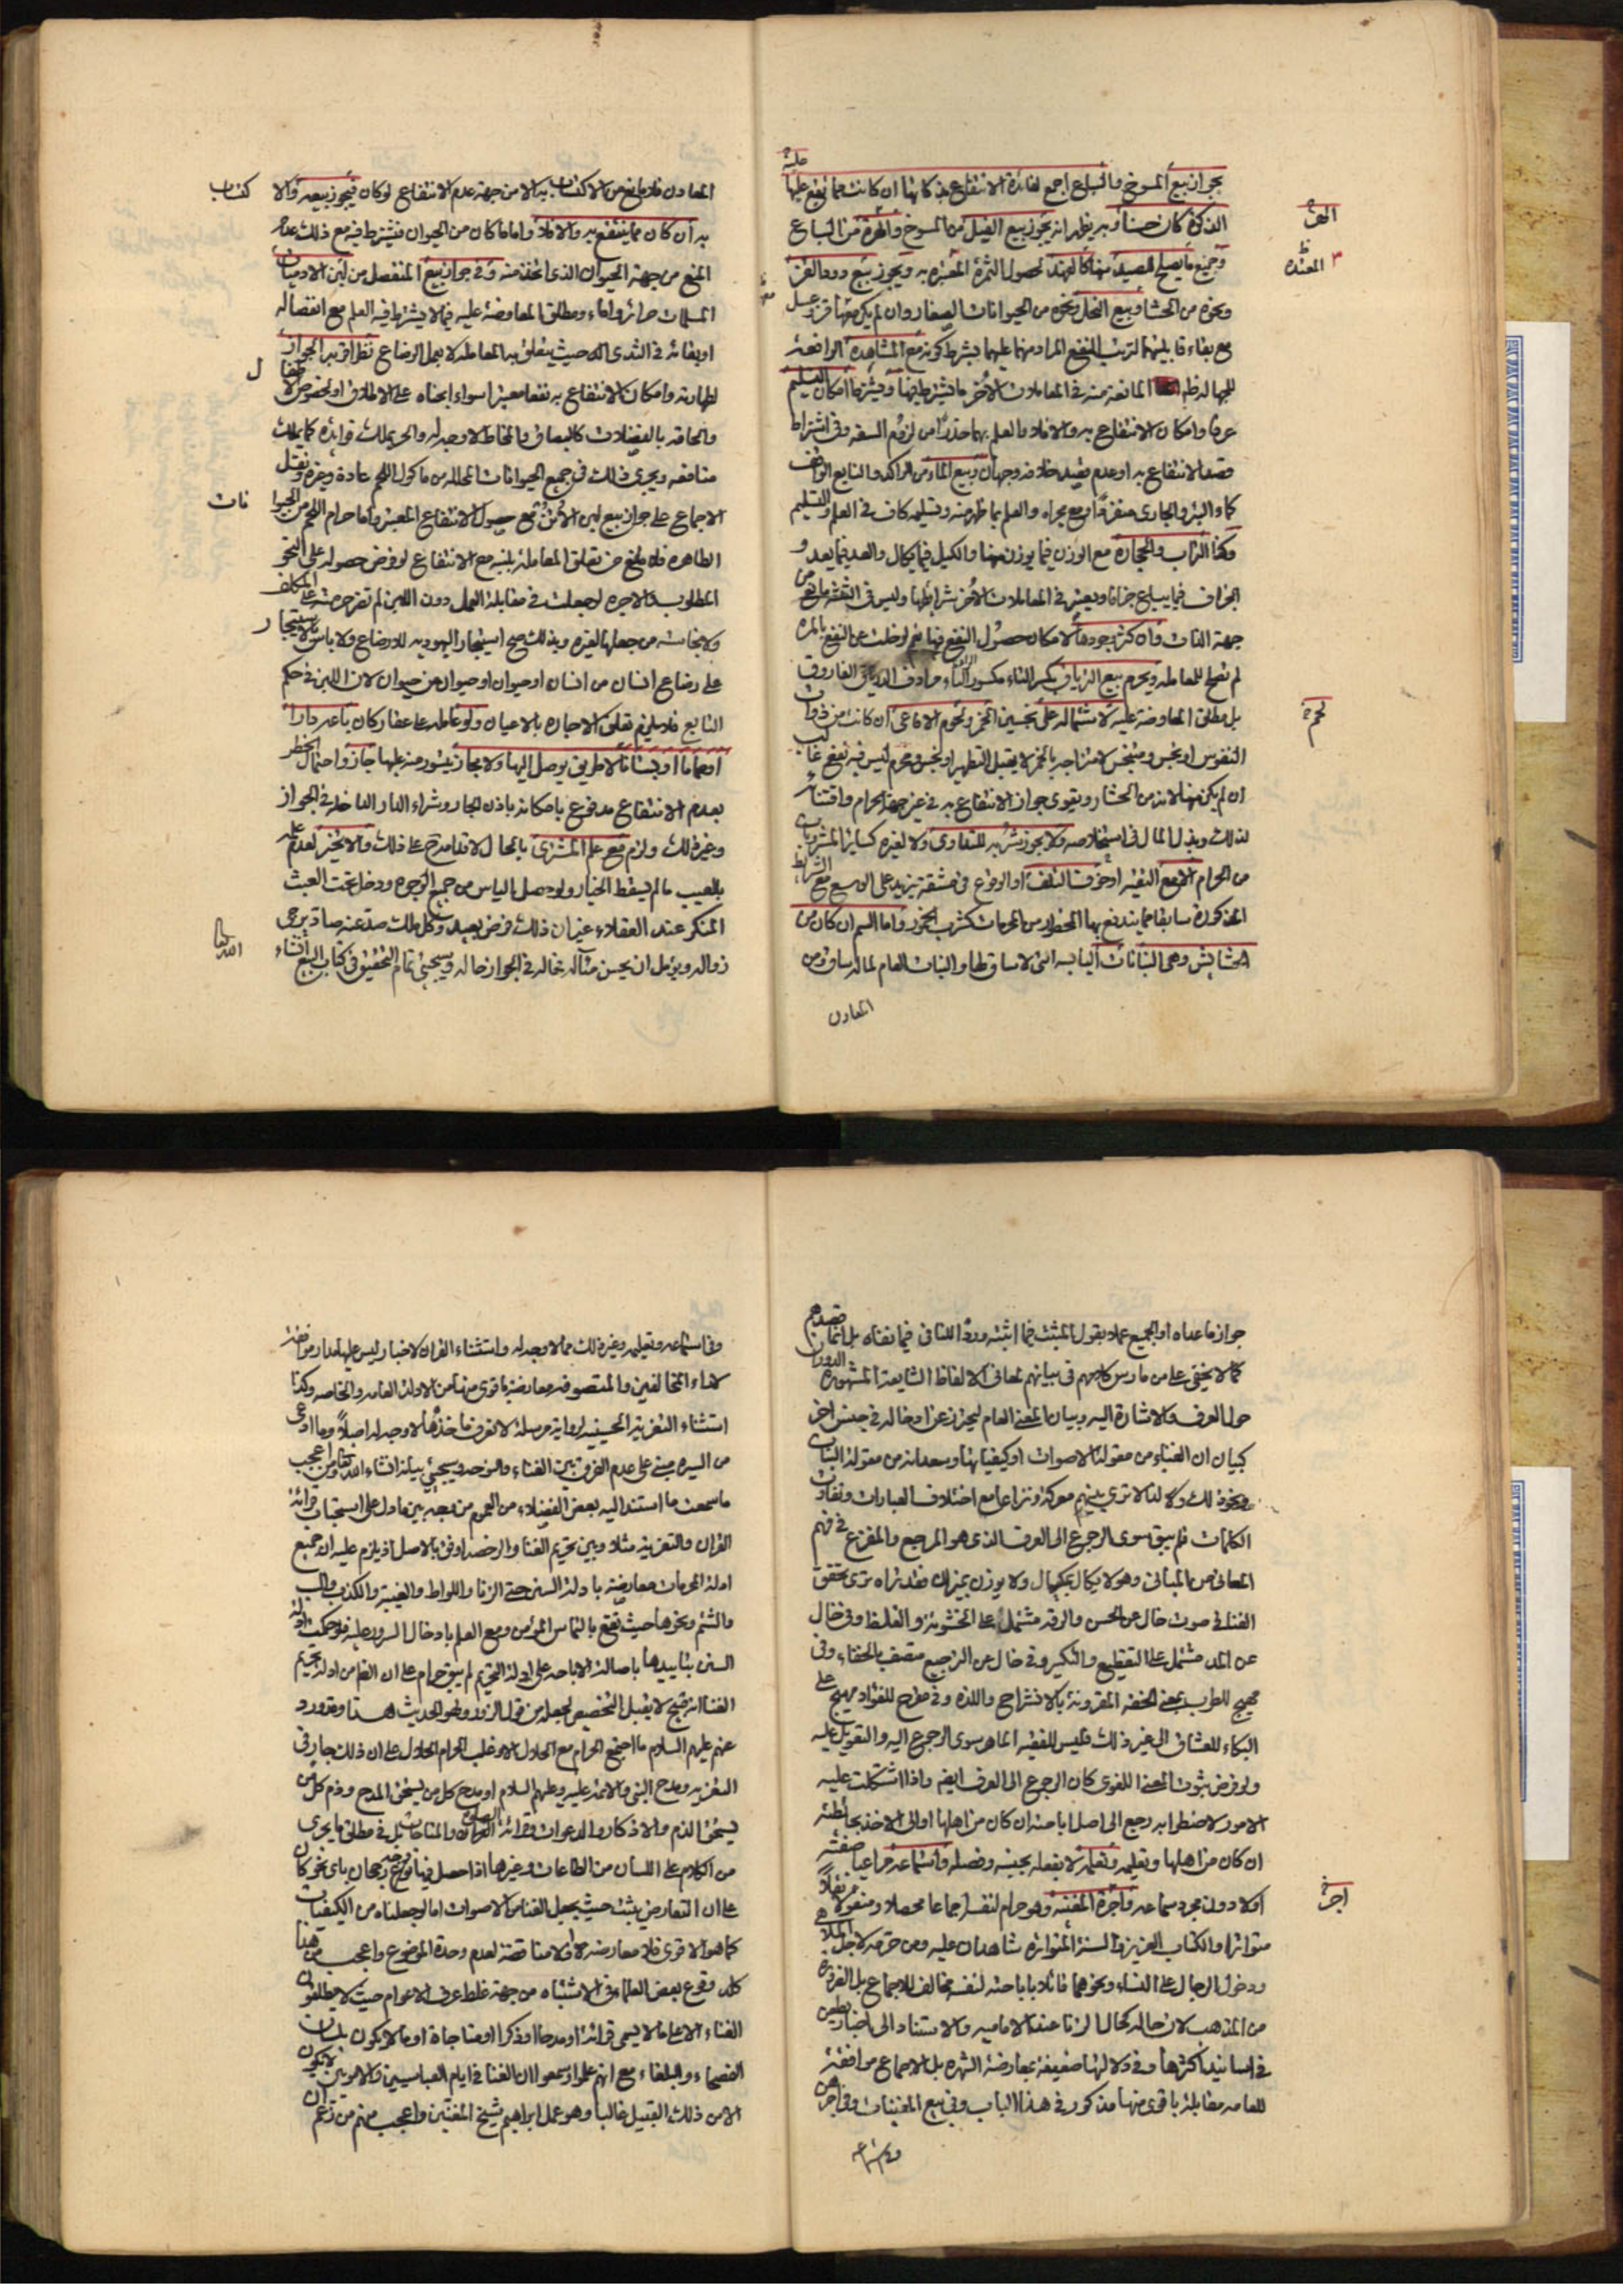 بجواز بيع المسوخ والسباع اجمع لفائدة الانتفاع بذكاتها ان كانت مما تقع عليها
الذكوة كان حسنا وبه يظهر انه يجوز بيع الفيل من المسوخ والهرة من السباع
وجميع ما يصلح للصيد منها كالفهد لحصول الثمرة المعتبره به ويجوز بيع دود القز
ونحوه من الحشار وبيع النحل ونحوه من الحيوانات الصغار وان لم يكن معها قز وعسل
مع بقاء قابليتهما لترتب النفع المراد منهما عليهما بشرط كونه مع المشاهدة الرافعة
للجهالة المانعة منه في المعاملات الاخر ما يشترط فيها ويشترط امكان التسليم
عرفا وامكان الانتفاع به والا فلا والعلم بهما حذرا من لزوم السفه وفي اشتراط
قصد الانتفاع به او عدم قصد خلافه وجهان وبيع الماء من الراكد والنابع الواقف
كماء البئر والجاري منفردا ومع مجراه والعلم بما ظهر منه وتسليمه كاف في العلم والتسليم
وكذا التراب والحجاره مع الوزن فيما يوزن منها والكيل فيما يكال والعد فيما يعد و
الجزاف فيما يباع جزافا ويعتبر في المعاملات الاخر شرائطها وليس في الثلثه مانع من
جهة الذات وان كثر وجودها لامكان حصول النفع منها نعم لو خلت عن النفع بالمره
لم تصلح للمعامله ويحرم بيع الترياق بكسر التاء مرادف الدرياق الفاروق
بل مطلق المعاوضة عليه لاشتماله على نجسين الخمر ولحوم الافاعي ان كانت من ذوات
النفوس او نجس ومتنجس لامتزاجه بالخمر لا يقبل التطهير او نجس ومحرم ليس فيه نفع غالب
ان لم يكن منها لانه من الحشار ويقوى جواز الانتفاع به في غير جهة الحرام واقتنائه
لذلك وبذل المال في استخلاصه ولا يجوز شربه للتداوي ولا لغيره كسائر المشروبات
من الحرام الا مع التقيه او خوف التلف او الوقوع في مشقة تزيد على الوسع مع الشرائط
المذكورة سابقا مما يندفع بها المحظور من المحرمات كشرب الخمر واما السم ان كان من
الحشايش وهي النباتات اليابسه التي لا ساق لها والنبات العام لما له ساق ومن
المعادن
المعادن فلا مانع من الاكتساب به الا من جهة عدم الانتفاع لو كان فيجوز بيعه والا
به ان كان مما ينتفع به والا فلا واما ما كان من الحيوان فيشترط فيه مع ذلك عدم
المنع من جهة الحيوان الذي اتخذ منه وفي جواز بيع المنفصل من لبن الادميات
المسلمات حرائر واماء ومطلق المعاوضة عليه فيما لا يشترط فيه العلم مع انفصاله
او بقائه في الثدي حيث يتعلق به المعامله لا بعمل الرضاع نظر اقربه الجواز
لطهارته وامكان الانتفاع به نفعا معتبرا سواء ابحناه على الاطلاق او لخصوص الاطفال
والحاقه بالفضلات كالبصاق والمخاط لا وجه له والحر يملك فوايده كما يملك
منافعه ويجري ذلك في جميع الحيوانات المحلله من ماكول اللحم عادة وغيره ونقل
الاجماع على جواز بيع لبن الاتن مع حصول الانتفاع المعتبر واما حرام اللحم من الحيوانات
الطاهره فلا مانع من تعلق المعاملة بلبنه مع الانتفاع لو فرض حصوله على النحو
المطلوب والاجره لو جعلت في مقابلة العمل دون اللبن لم تقض حرمته على المكلف
ولا نجاسته من جعلها لغيره وبذلك صح استيجار اليهوديه للارضاع ولا باس بالاستيجار
على رضاع انسان من انسان او حيوان او حيوان من حيوان لان اللبن في حكم
التابع فلا يلزم تعلق الاجاره بالاعيان ولو عامله على عقار كان باعه دارا
او حماما او بستانا لا طريق يوصل اليها ولا مجاز يتسور منه عليها جاز واحتمال الحظر
بعدم الانتفاع مدفوع بامكانه باذن الجار وشراء الدار الداخله في الجواز
وغير ذلك ولزم مع علم المشتري بالحال لاقدامه على ذلك والا تخير لعدم علمه
بالعيب ما لم يسقط الخيار ولو حصل الياس من جميع الوجوه ودخل تحت العبث
المنكر عند العقلاء غير ان ذلك فرض بعيد وكل ملك صد عنه صاد يرجى
زواله ويؤمل ان يحسن مئاله حاله في الجواز حاله وسيجئ تمام التحقيق في كتاب البيع انشاء
الله تعالى
جواز ما عداه او الجميع عملا بقول المثبت فيما اثبته ورد النافي فيما نفاه بل انما قصدهم
كما لا يخفى على من مارس كلامهم في بيانهم لمعاني الالفاظ الشايعة المشهوره الدوران
حول العرف والاشارة اليه وبيان المعنى العام ليحترز عن ادخاله في جنس اخر
كبيان ان الغناء من مقولة الاصوات او كيفياتها وسعدانه من مقولة النبات
ونحو ذلك ولذا لا ترى بينهم معركة ونزاعا مع اختلاف العبارات وتفاوت
الكلمات فلم يبق سوى الرجوع الى العرف الذي هو المرجع والمفزع في فهم
المعاني من المباني وهو لا يكال بمكيال ولا يوزن بميزان فقد تراه يرى تحقق
الغناء في صوت خال عن الحسن والرقه مشتمل على الخشونة والغلظ وفي خال
عن المد مشتمل على التقطيع والتكسر وفي خال عن الترجيع متصف بالخفاء وفي
مهيج للطرب بمعنى الخفه المقرونة بالانشراح واللذه وفي مقرح للفؤاد مهيج على
البكاء للعشاق الى غير ذلك فليس للفقيه الماهر سوى الرجوع اليه والتعويل عليه
ولو فرض ثبوت المعنى اللغوي كان الرجوع الى العرف ايضا واذا اشكلت عليه
الامور لاضطرابه رجع الى اصل اباحته ان كان من اهلها او الى الاخذ بحائطته
ان كان من اهلها وتعليمه وتعلمه لا بفعله بجنسه وفصله واستماعه مراعيا صفته
اولا دون مجرد سماعه واجرة المغنيه وهو حرام لنفسه اجماعا محصلا ومنقولا نقلا
متواترا والكتاب العزيز والسنة المتواتره شاهدان عليه ومن حرمه لاجل الملاهي
ودخول الرجال على النساء ونحوهما قائلا باباحته لنفسه مخالف للاجماع بل الضرورة
من المذهب لان حاله كحال الزنا عند الاماميه والاستناد الى اخبار يطعن
في اسانيد اكثرها وفي دلالتها ضعيفة بمعارضة الشهره بل الاجماع موافقة
للعامه مقابلة باقوى منها مذكور في هذا الباب وفي بيع المغنيات وفي اجرهن
وفي استماعه وتعليمه وغير ذلك مما لا وجه له واستثناء القران لاخبار ليس عليها مدار موافقة
لاهواء المخالفين والمتصوفه معارضة باقوى منها من الادلة العامه والخاصه وكذا
استثناء التعزية الحسينيه لرواية مرسلة لا نعرف ماخذها لا وجه له اصلا وما ادعى
من السيره مبني على عدم الفرق بين الغناء والنوحه وسيجئ بيانه انشاء الله تعالى ومن اعجب
ما سمعت ما استند اليه بعض الفضلاء من العموم من وجه بين ما دل على استحباب قرائة
القران والتعزيه مثلا وبين تحريم الغنا والرخصه اوفق بالاصل اذ يلزم عليه ان جميع
ادلة المحرمات معارضة بادلة السنن حتى الزنا واللواط والغيبة والكذب والسب
والشتم ونحوها حيث تقع بالتماس المؤمن ومع العلم بادخال السرور عليه فلو حكمت ادلة
السنن بتاييدها باصالة الاباحه على ادلة التحريم لم يبق حرام على ان الظاهر من ادلة تحريم
الغنا انه قبيح لا يقبل التخصيص لجعله من قول الزور ولهو الحديث هذا وقد ورد
عنهم عليهم السلام ما اجتمع الحرام مع الحلال الا وغلب الحرام الحلال على ان ذلك جار في
التعزيه ومدح النبي والائمه عليه وعليهم السلام او مدح كل من يستحق المدح وذم كل من
يستحق الذم والاذكار والدعوات وقرائة القران والمناجات بل في مطلق ما يجري
من الكلام على اللسان من الطاعات وغيرها اذا حصل فيها نوع رجحان باي نحو كان
على ان التعارض يثبت حيث يجعل الغنا من الاصوات اما لو جعلناه من الكيفيات
كما هو الاقوى فلا معارضه ولا مناقضة لعدم وحدة الموضوع واعجب من هذا
كله وقوع بعض العلماء في الاشتباه من جهة غلط عرف الاعوام حيث لا يطلقون
الغناء الا على ما لا يسمى قرائة او مدحا او ذكرا او مناجاة او ما لا يكون بلسان
الفصحاء والبلغاء مع انهم علموا او سمعوا ان الغنا في ايام العباسيين والامويين لا يكون
الا من ذلك القبيل غالبا وهو عمل ابراهيم شيخ المغنين واعجب منهم من زعم ان